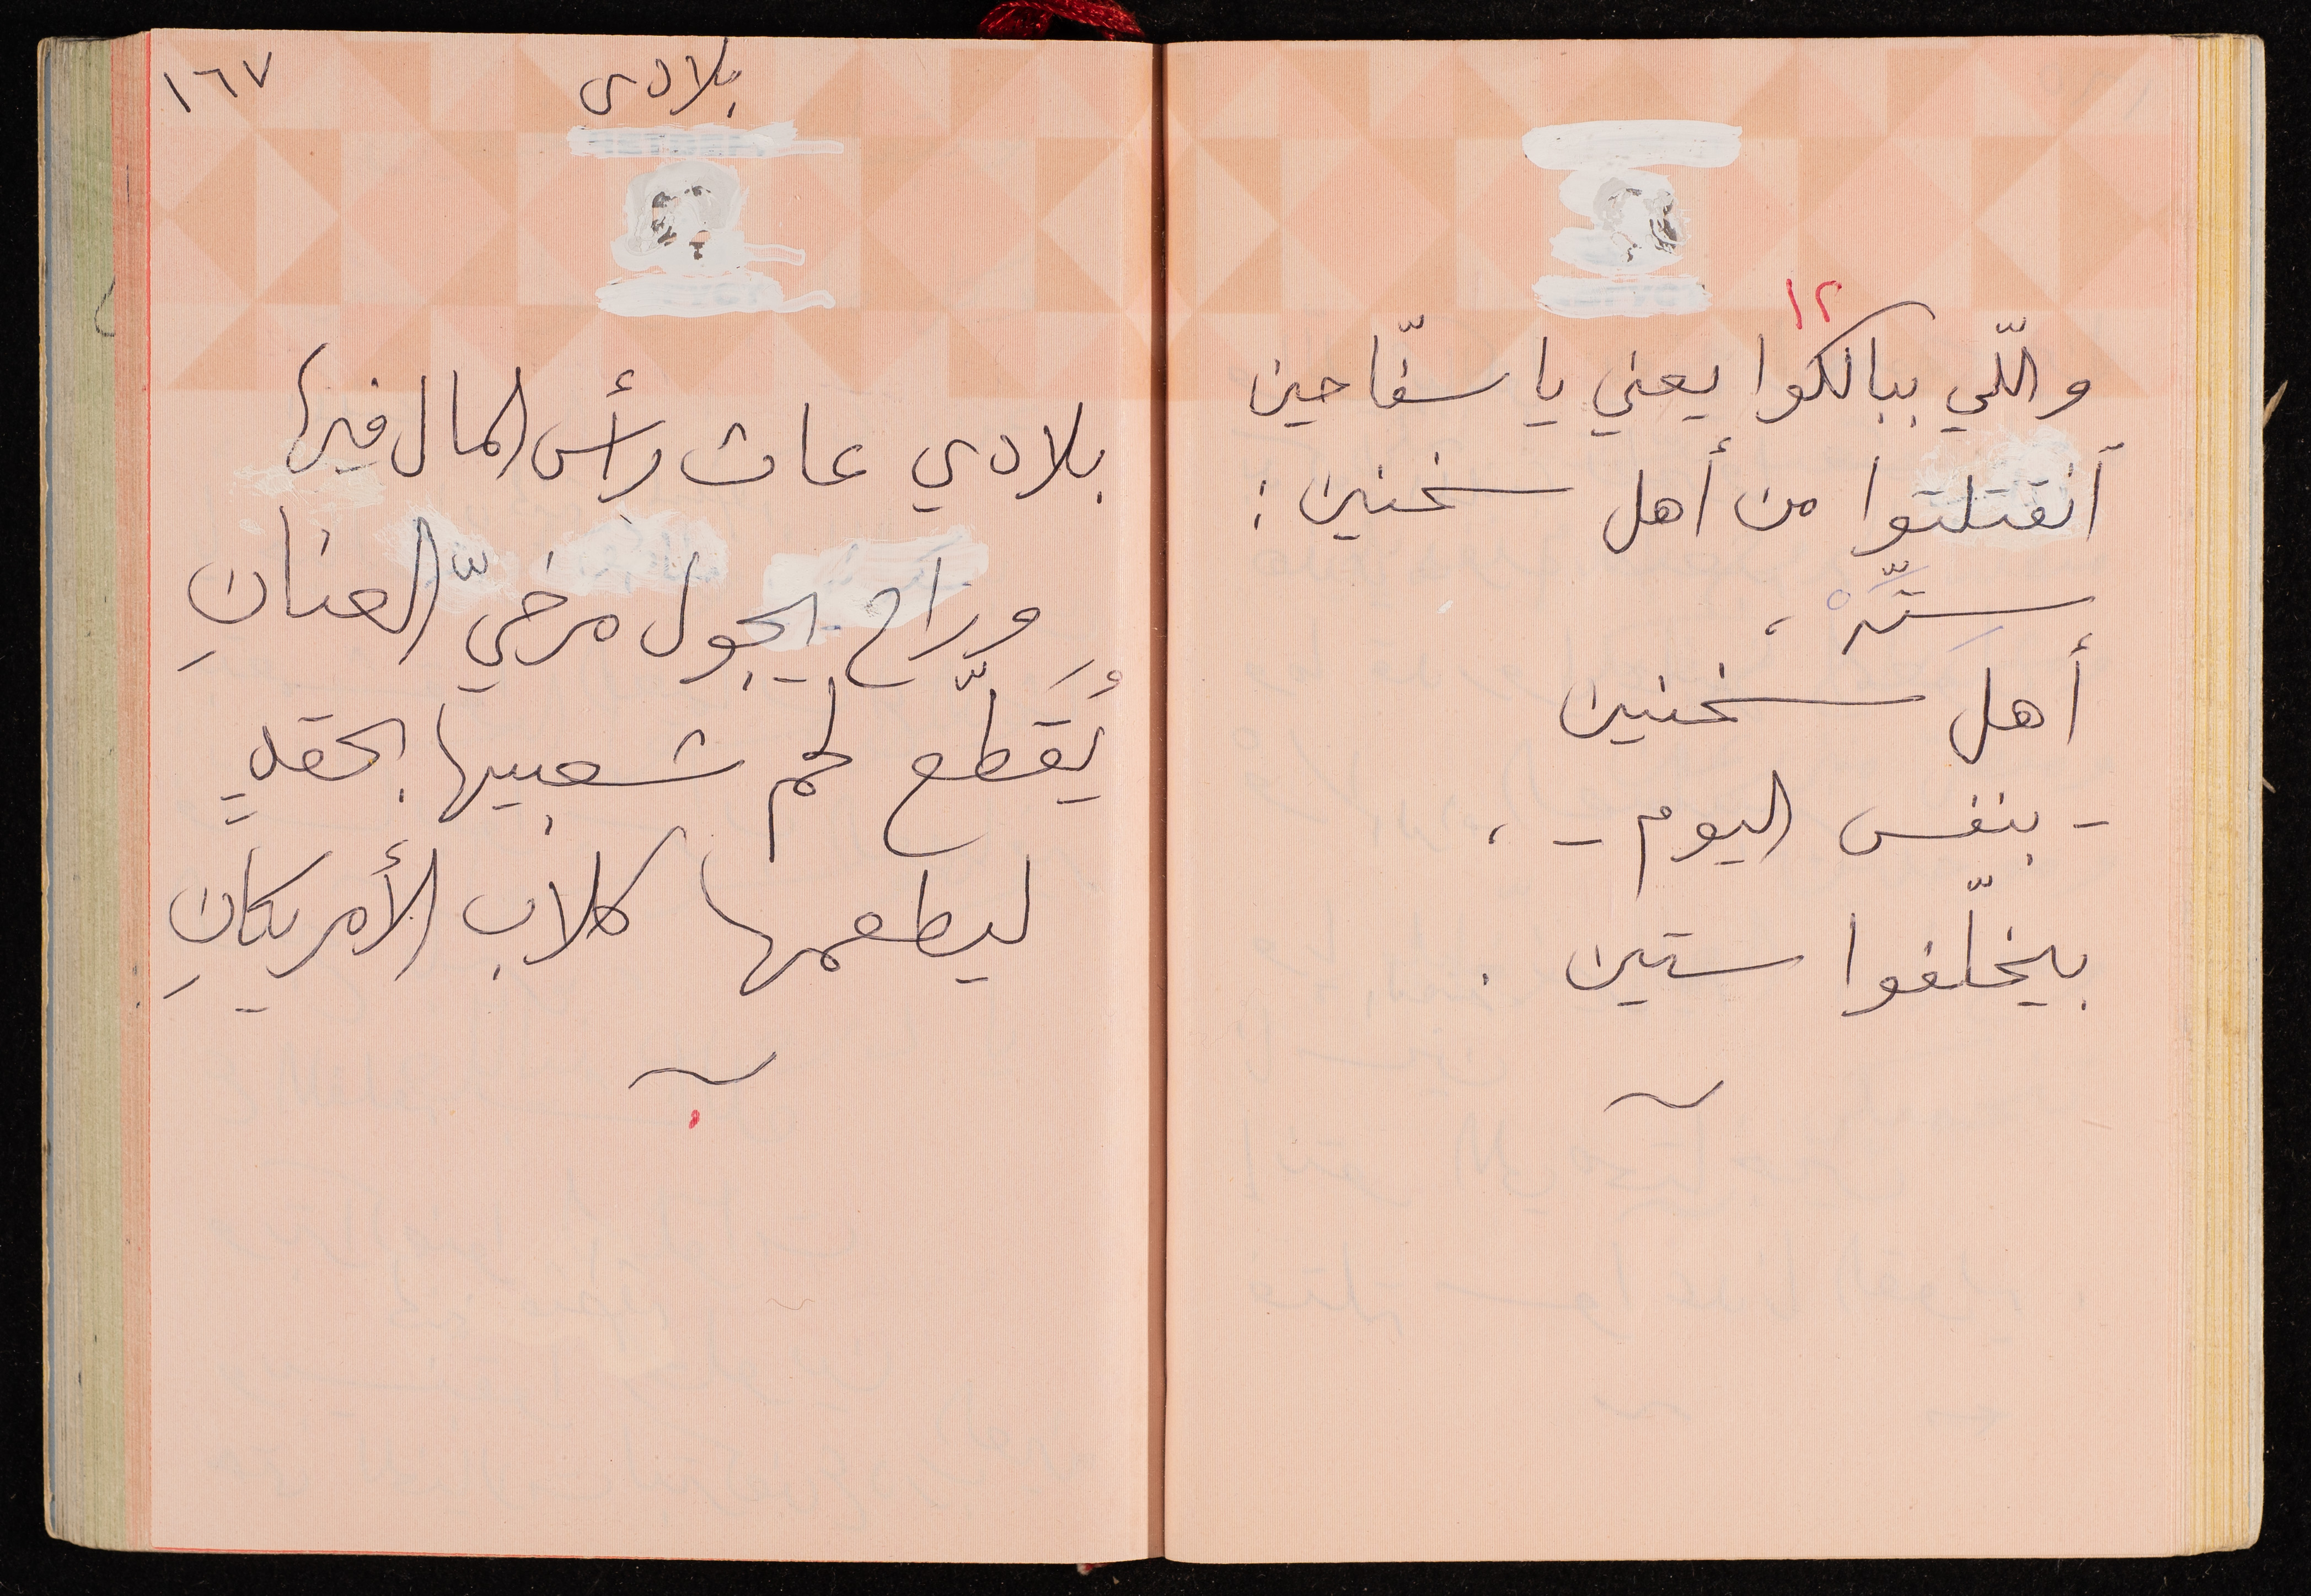 ١٢
واللّي ببالكوا يعني يا سفّاحين
انقتلتوا من أهل سخنين :
ستّهْ ،
أهل سخنين
- بنفس اليوم - ،
بيخلّفوا ستين .
١٦٧
بلادي
بلادي عاث رأس المال فيها
وراح يجول مرخيّ العنانِ
يُقَطّع لحم شعبيها بحقدٍ
ليطعمها كلاب الأمريكانِ